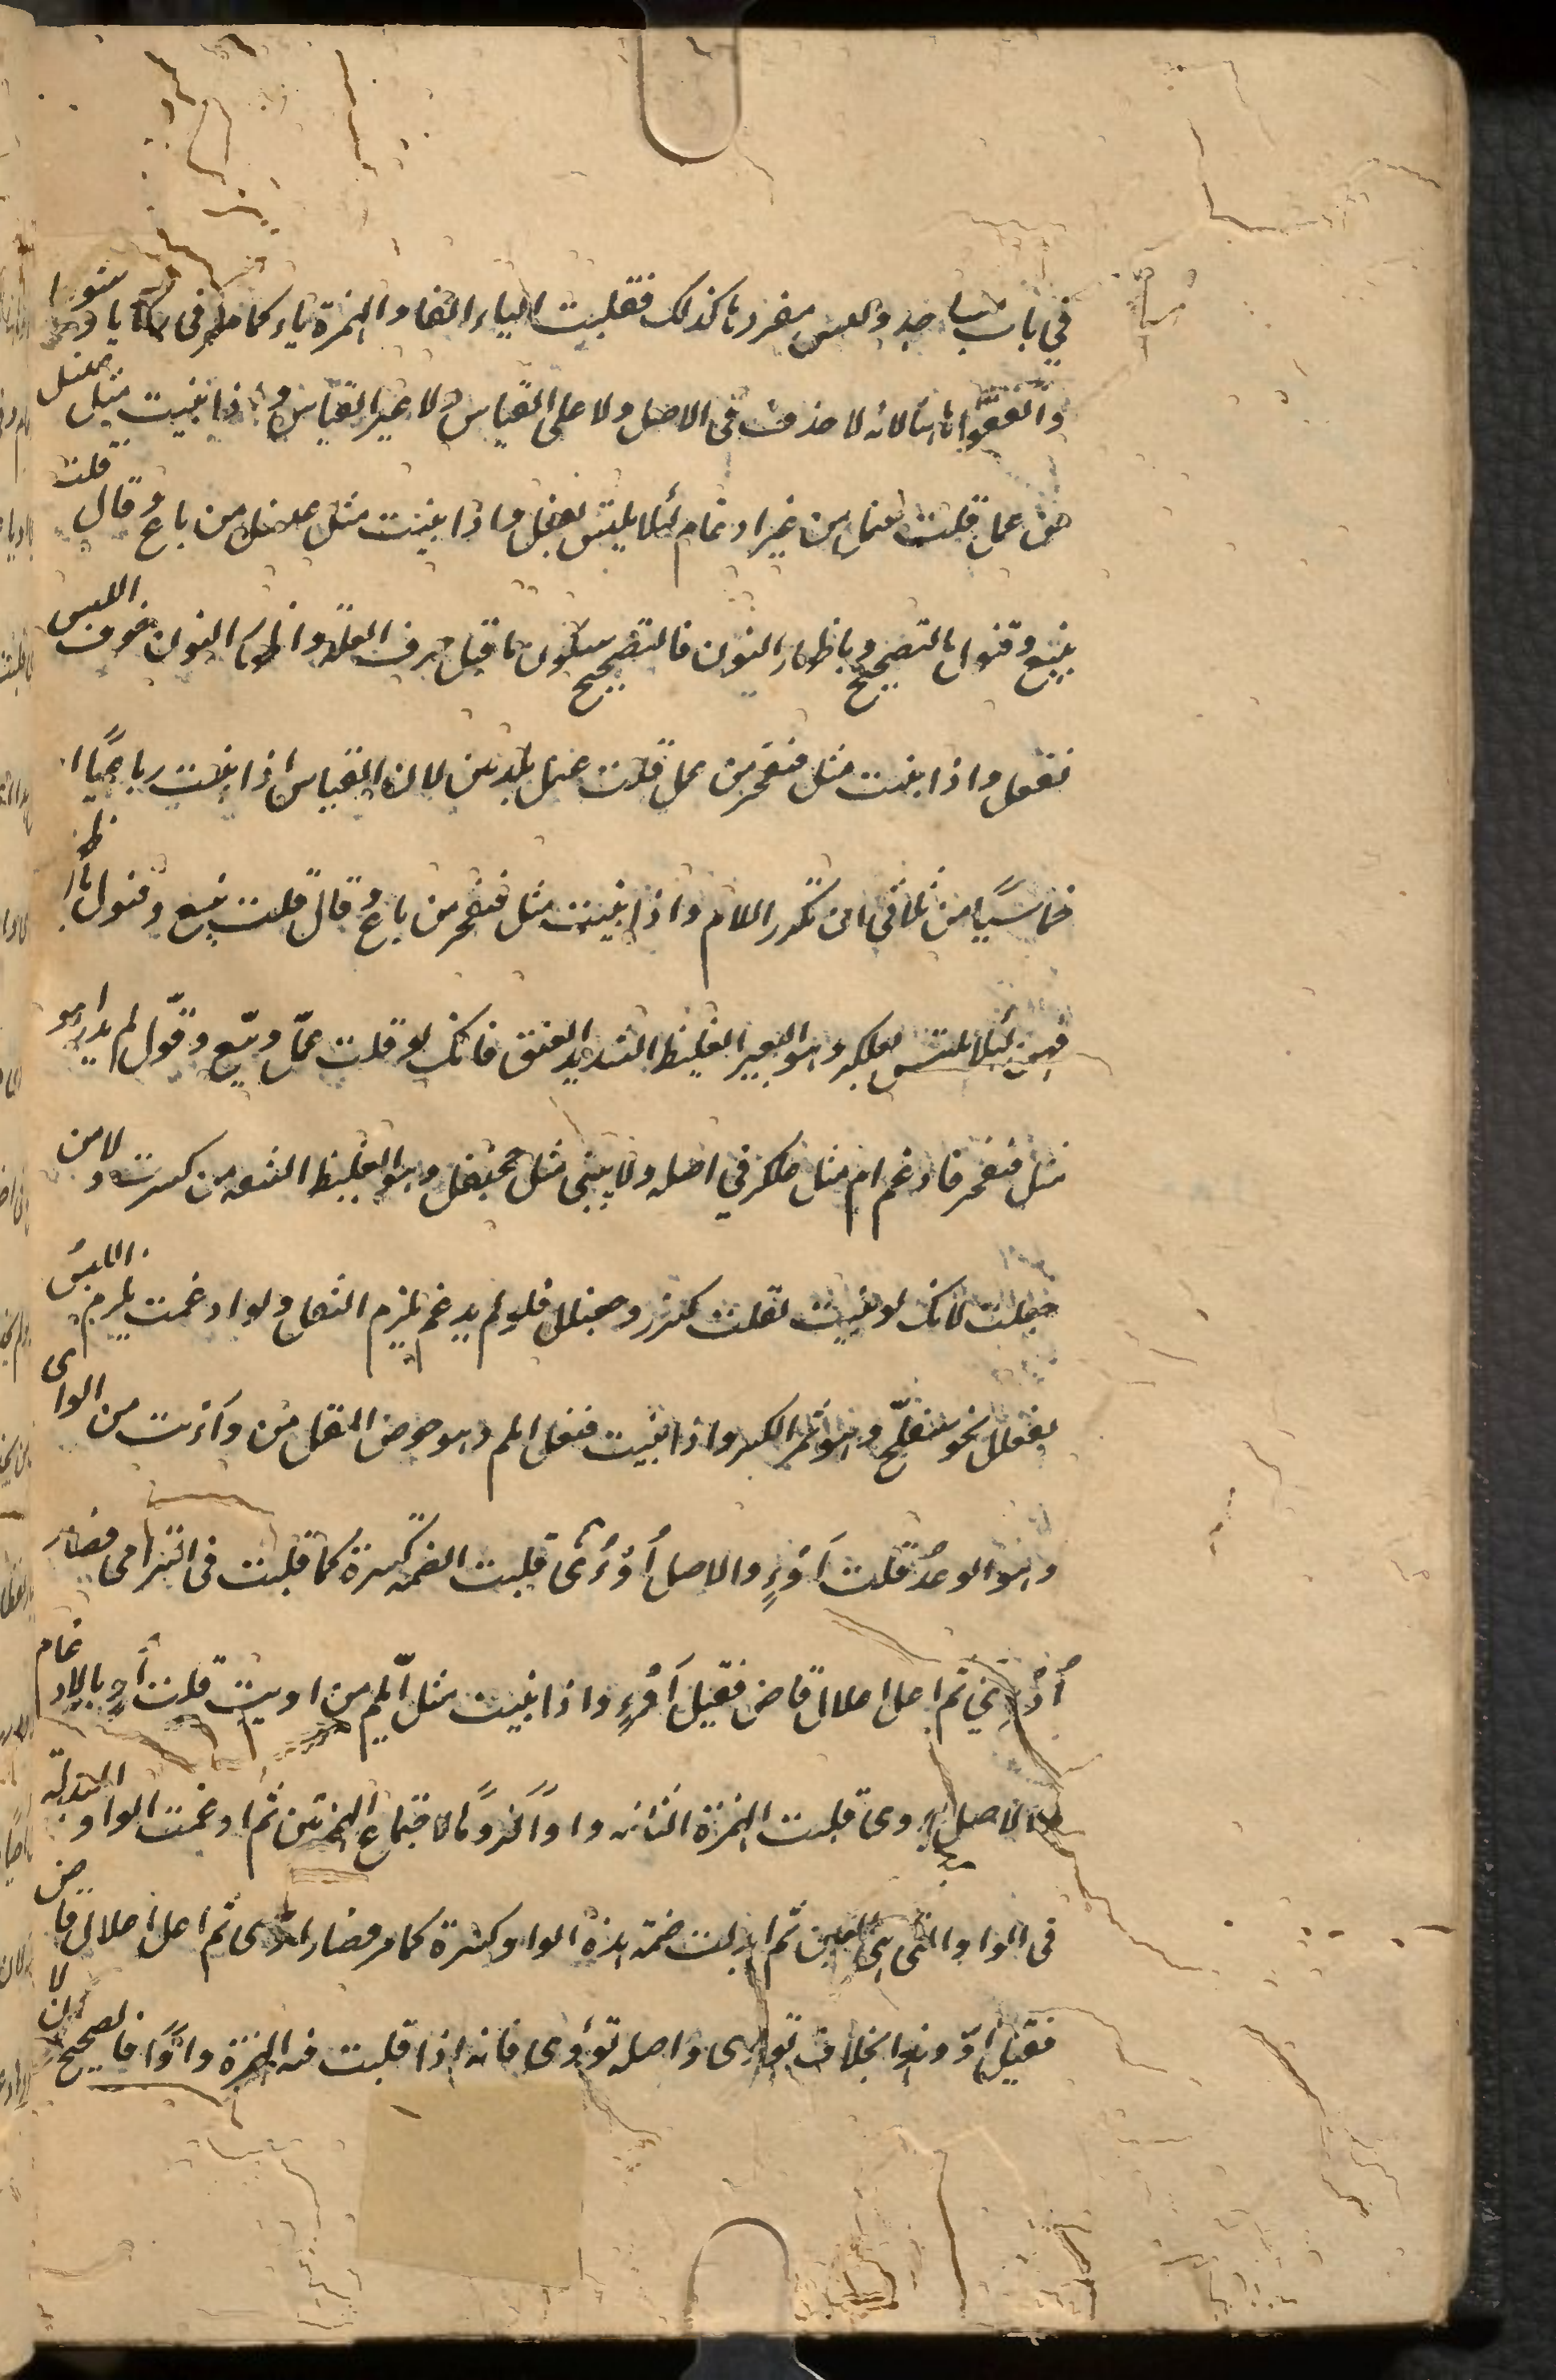 في باب مساجد وليس مفردها كذلك فقلبت الياء الفا والهمزة ياء كما مر في خطايا وسووا
واتفقوا ههنا لانه لا حذف في الاصل ولا على القياس ولا غير القياس واذا بنيت مثل عنسل
من عمل قلت عنمل من غير ادغام لئلا يلتبس بفعل واذا بنيت مثل عنسل من باع وقال قلت
بنيع وقنول بالتصحيح وباظهار النون فالتصحيح بسكون ما قبل حرف العلة واظهار النون لخوف اللبس
بفعل واذا بنيت مثل قنفخر من عمل قلت عنمل بلامين لان القياس اذا بنيت رباعيا او
خماسيا من ثلاثي ان تكرر اللام واذا بنيت مثل قنفخر من باع وقال قلت بنيع وقنول باظهار
فيهن لئلا يلتبس بعلكد وهو البعير الغليظ الشديد العنق فانك لو قلت عمل وبيع وقول لم يدر اهو
مثل قنفخر فادغم ام مثل علكد في اصله ولا يبنى مثل جحنفل وهو الغليظ الشفة من كسرت ولا من
جعلت لانك لو بنيت لقلت كسنرر وجعنلل فلو لم يدغم يلزم الثقل ولو ادغمت يلزم اللبس
بفعلل نحو شفلح وهو ثمر الكبر واذا بنيت مثل ابلم وهو خوص المقل من وأيت من الوأى
وهو الوعد قلت أوء والاصل أوؤى قلبت الضمة كسرة كما قلبت في الترامى فصار
أوئي ثم اعل اعلال قاض فقيل أوء واذا بنيت مثل ابلم من اويت قلت أو بالادغام
والاصل أاوى قلبت الهمزة الثانية واوا لزوما لاجتماع الهمزتين ثم ادغمت الواو المبدلة
في الواو التي هي العين ثم ابدلت ضمة هذه الواو كسرة كما مر فصار اوى ثم اعل اعلال قاض
فقيل أو وهذا بخلاف تووى واصله تؤوى فانه اذا قلبت فيه الهمزة واوا فالصحيح ان لا